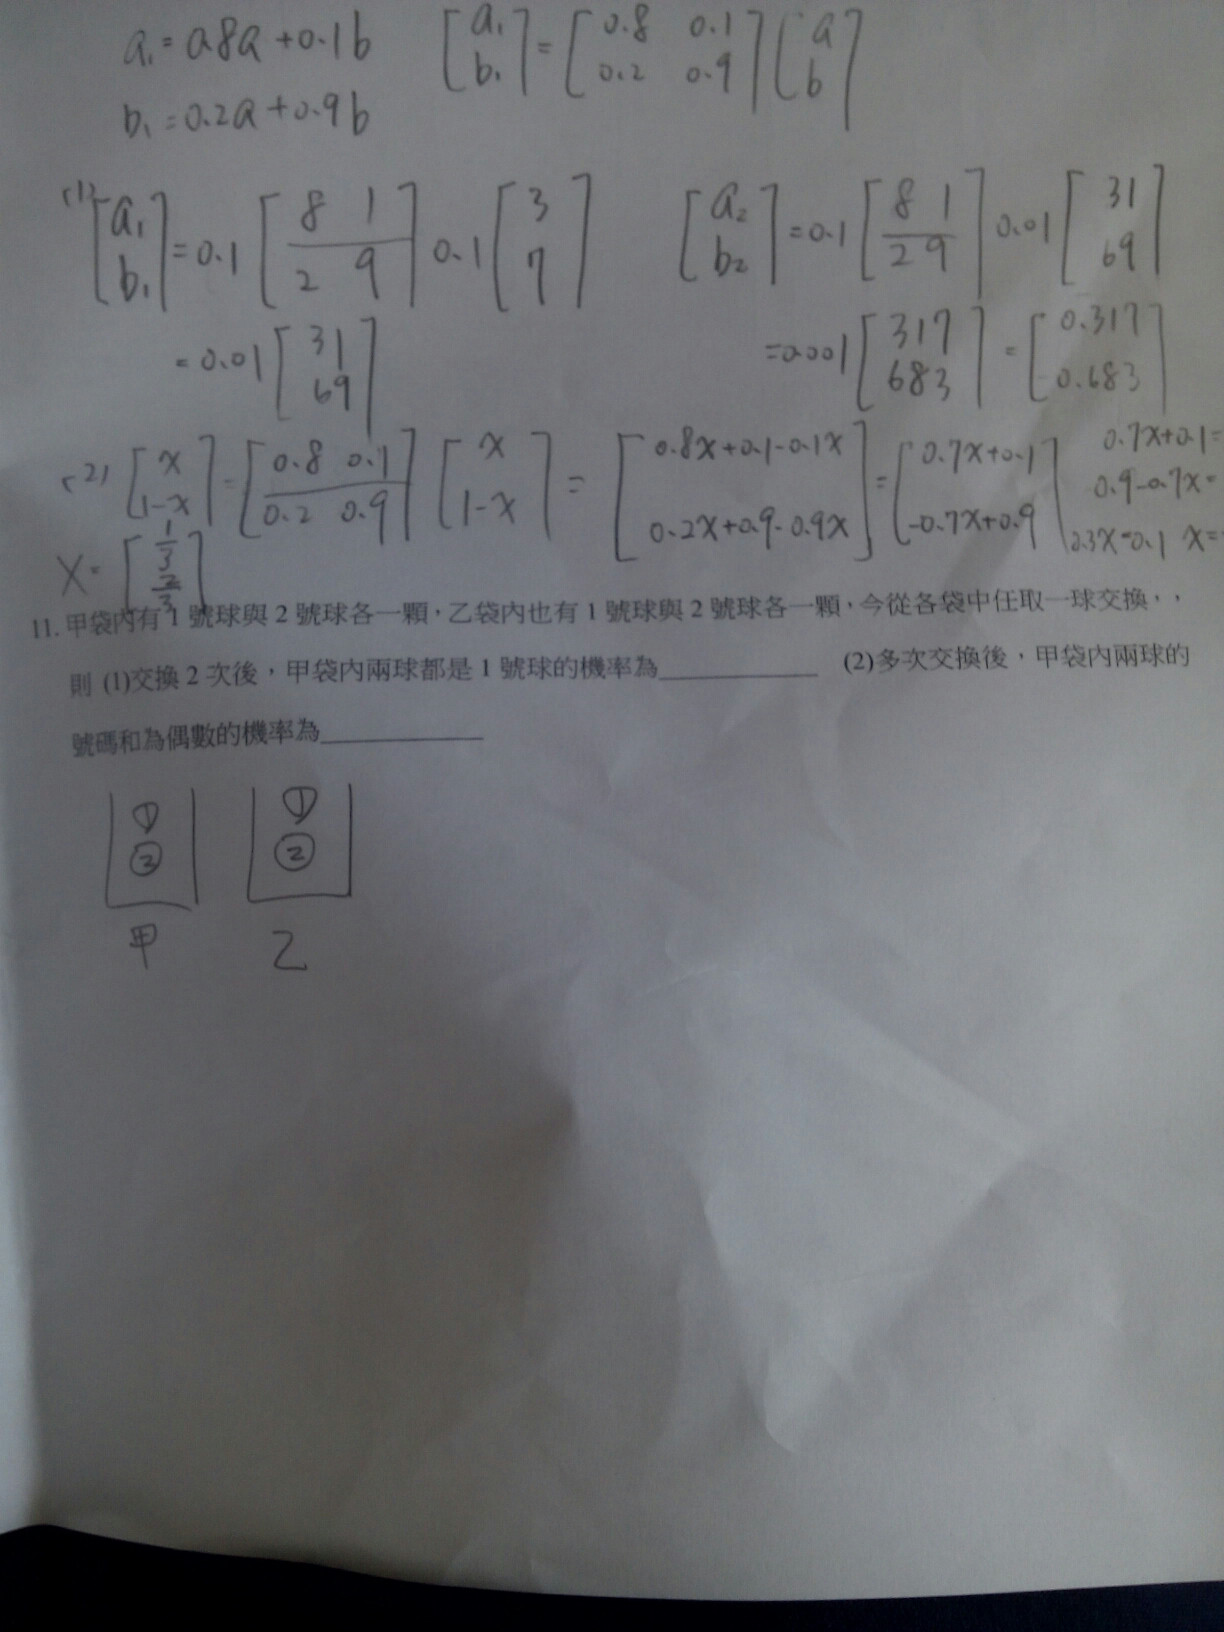 a₁=0.8a+0.1b [a₁ b₁]=[0.8 0.1 0.2 0.9][a b]
b₁=0.2a+0.9b
(1) [a₁ b₁]=0.1[8 1 2 9]0.1[3 7] [a₂ b₂]=0.1[8 1 2 9]0.01[31 69]
=0.01[31 69] =0.001[317 683]=[0.317 0.683]
(2) [x 1-x]=[0.8 0.1 0.2 0.9][x 1-x]=[0.8x+0.1-0.1x 0.2x+0.9-0.9x]=[0.7x+0.1 -0.7x+0.9] 0.7x+0.1=
0.9-0.7x=
0.3x=0.1 x=
X=[1/3 2/3]
11. 甲袋內有 1 號球與 2 號球各一顆,乙袋內也有 1 號球與 2 號球各一顆,今從各袋中任取一球交換,,
則 (1)交換 2 次後,甲袋內兩球都是 1 號球的機率為__________ (2)多次交換後,甲袋內兩球的
號碼和為偶數的機率為__________
① ①
② ②
甲 乙